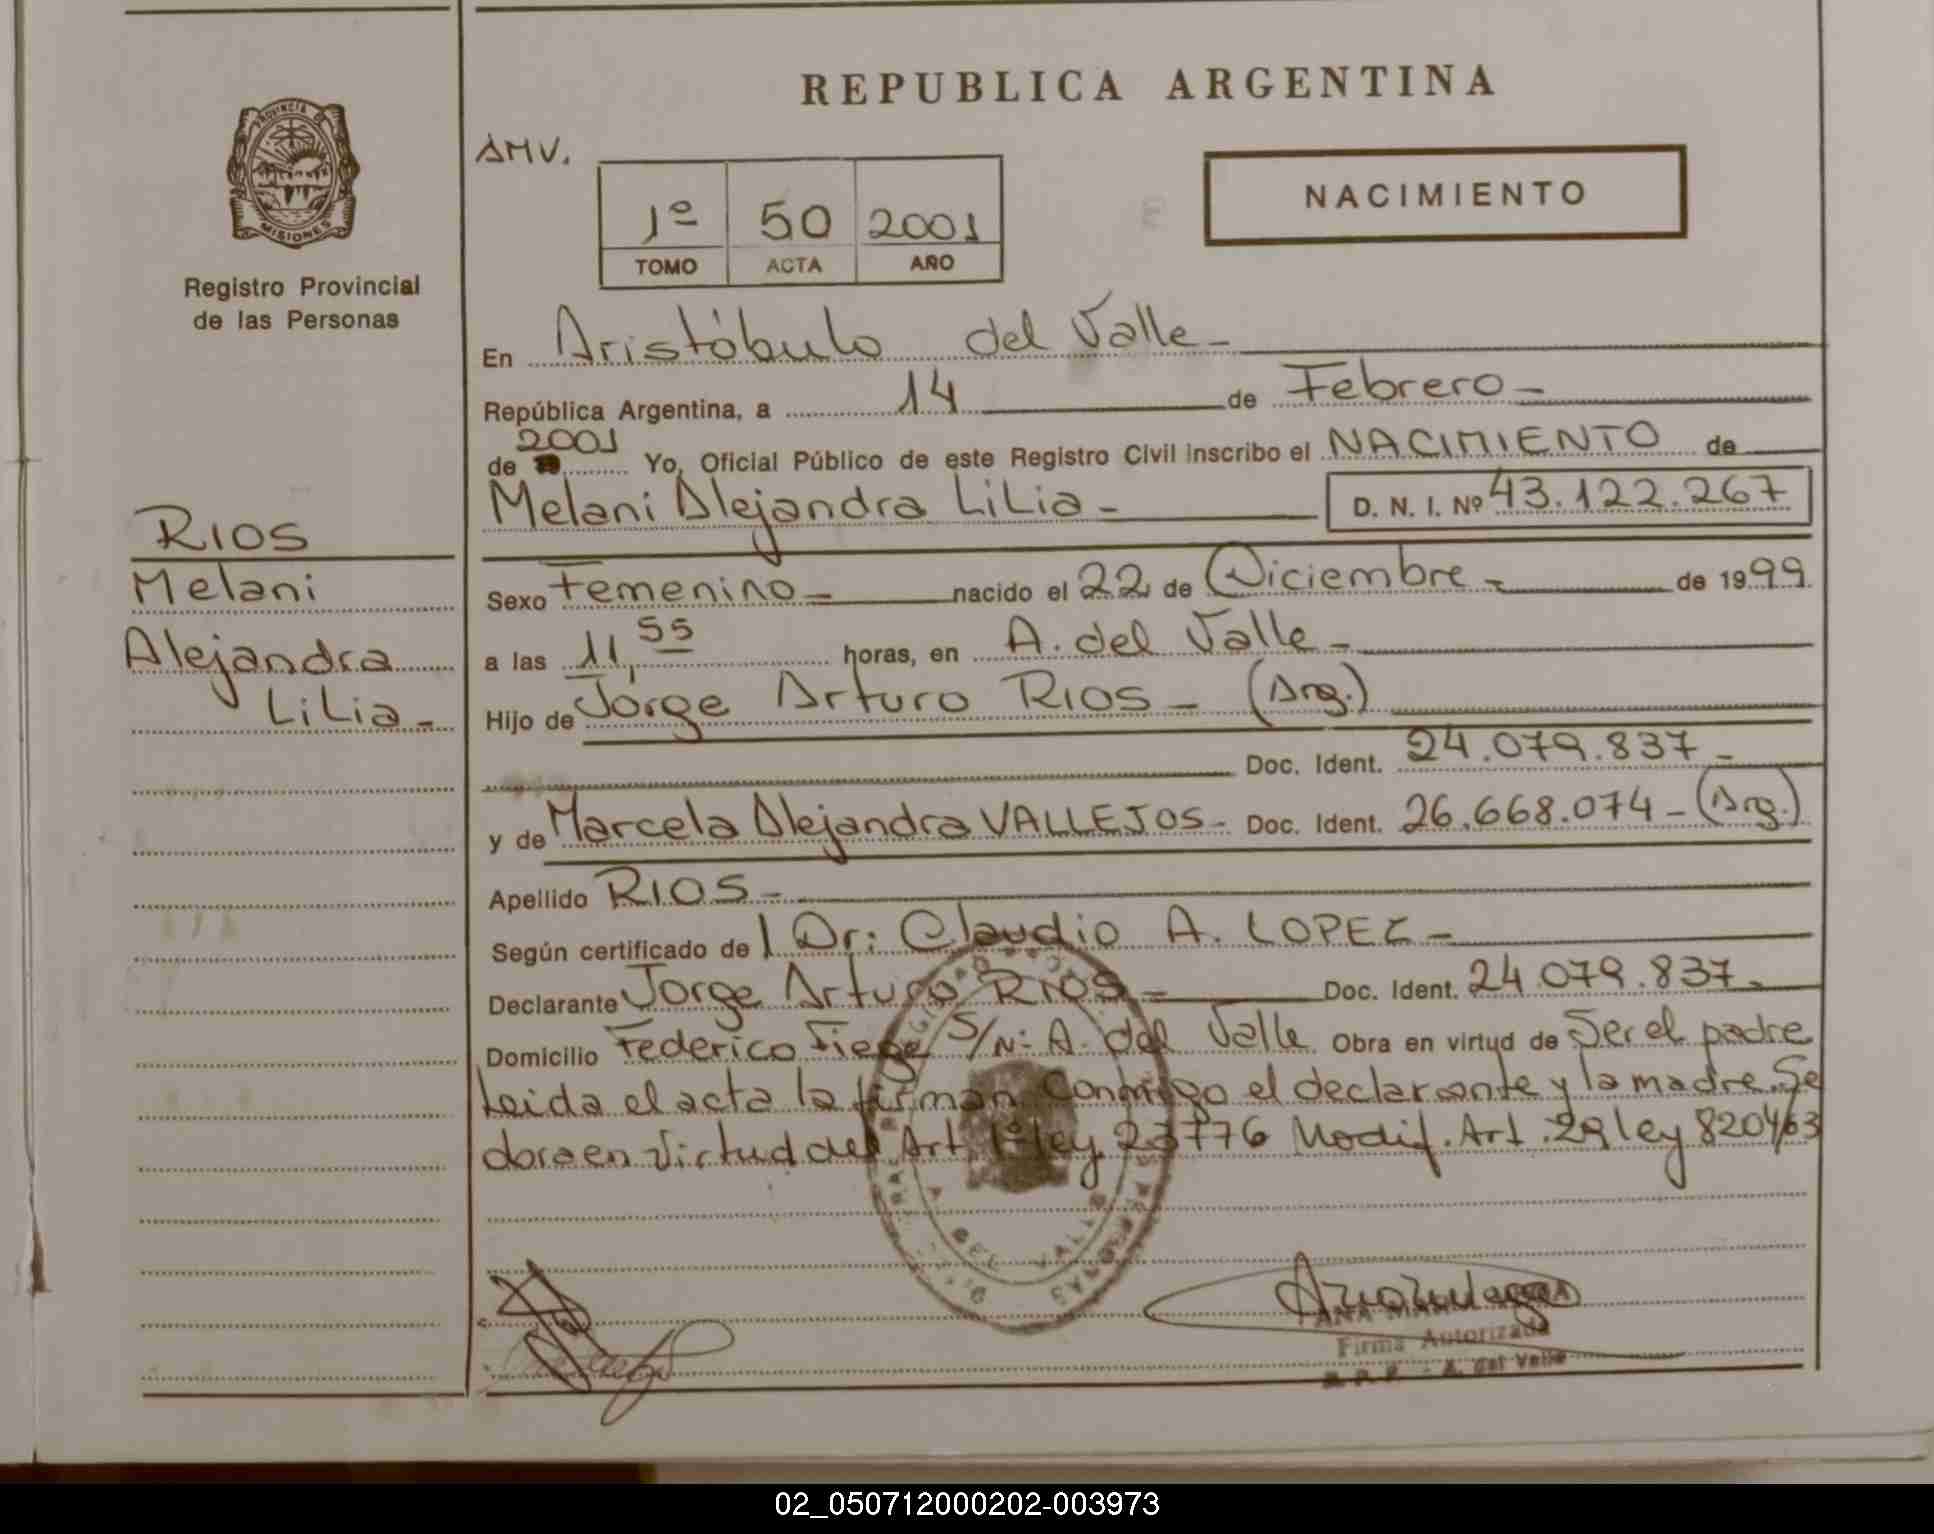 REPUBLICA ARGENTINA
PROVINCIA D MISIONES
Registro Provincial
de las Personas
AMV.
1º 50 2001
TOMO ACTA AÑO
NACIMIENTO
En Aristóbulo del Valle -
República Argentina, a 14 de Febrero -
de 2001 Yo, Oficial Público de este Registro Civil inscribo el NACIMIENTO de
Melani Alejandra LiLia - D. N. I. Nº 43.122.267
RIOS
Melani
Alejandra
LiLia -
Sexo Femenino - nacido el 22 de Diciembre - de 1999
a las 11,55 horas, en A. del Valle -
Hijo de Jorge Arturo RIOS - (Arg.)
Doc. Ident. 24.079.837 -
y de Marcela Alejandra VALLEJOS - Doc. Ident. 26.668.074 - (Arg.)
Apellido RIOS -
Según certificado de l Dr: Claudio A. LOPEZ -
Declarante Jorge Arturo RIOS - Doc. Ident. 24.079.837.
Domicilio Federico Fiege S/Nº A. del Valle Obra en virtud de Ser el padre
Leida el acta la firman conmigo el declarante y la madre. Se
labra en virtud del Art. 1º ley 23776 Modif. Art. 29 ley 8204/63
DEL VALLE
ANA
Firma Autorizada
A. del Valle
02_050712000202-003973